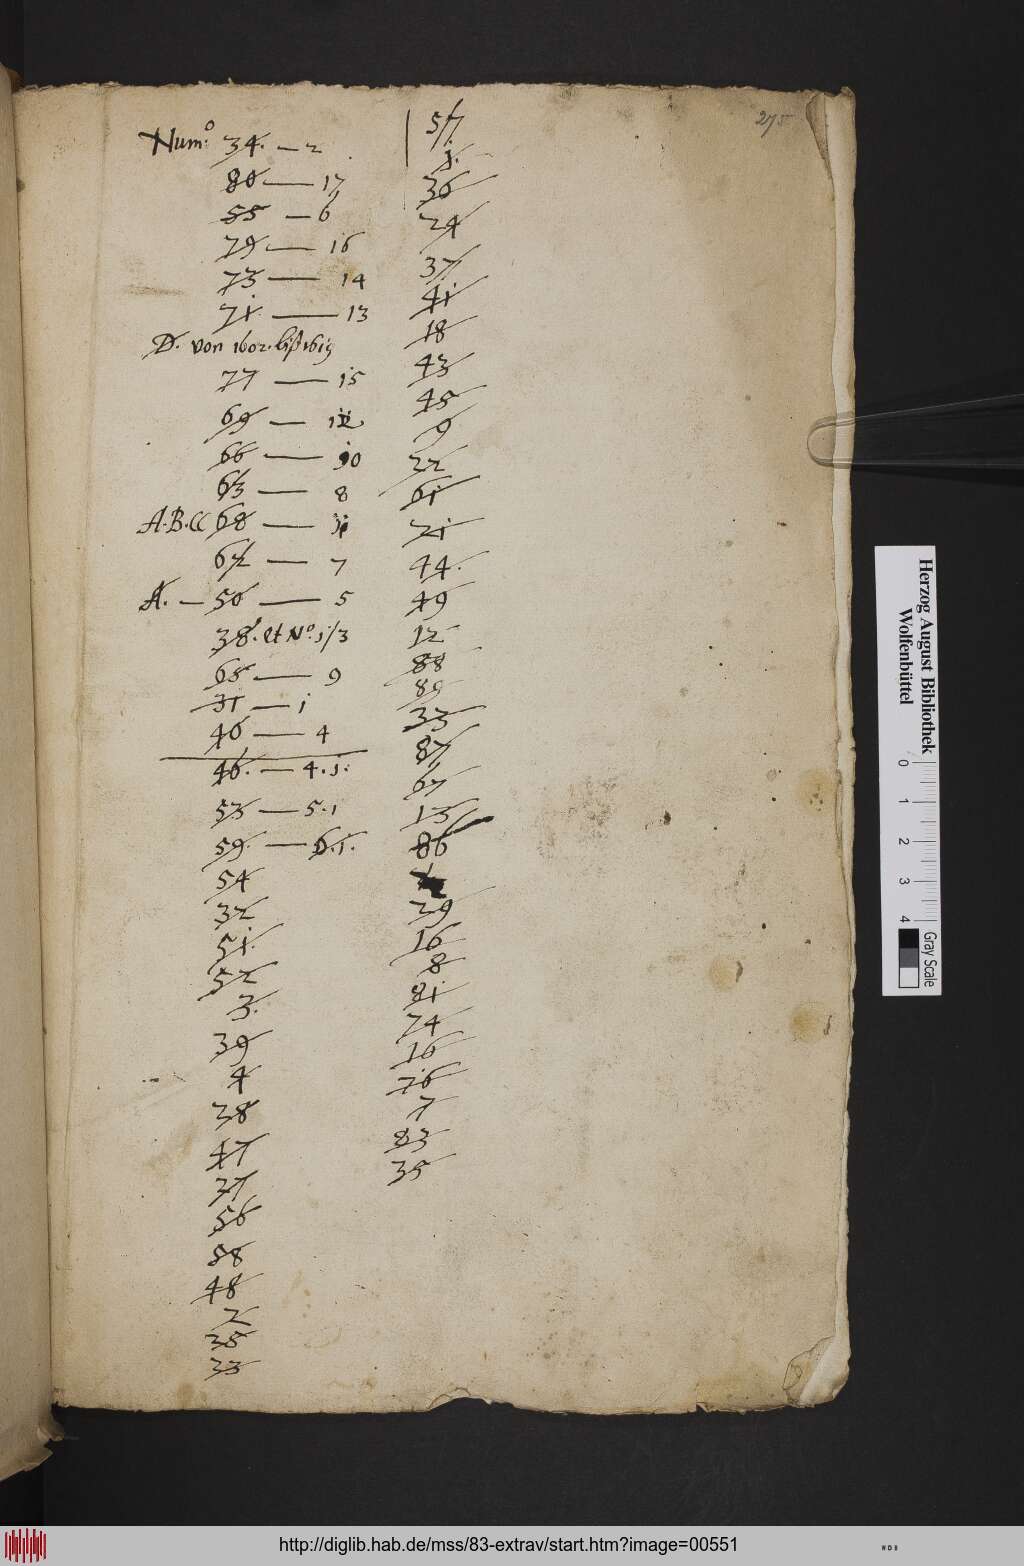 275
Num.º 34. — 2
80 — 17
55 — 6
79 — 16
73 — 14
71. — 13
D. von 1602. biß 1619
77 — 15
69 — 12
66 — 10
63 — 8
A.B.CC 68 — 11
62 — 7
A. — 50 — 5
38. et Nº. 1/3
65 — 9
31 — 1
40 — 4
46. — 4.1.
53 — 5.1
59. — 6.1.
54
32
51.
52
3.
39
4
38
47
37
56
58
48
2
35
33
57
1.
36
24
37
41
18
43
45
9
22
61
21
44.
49
12
88
89
33
87
67
13
86
29
16
8
81
74
10
76
7
83
35
Herzog August Bibliothek
Wolfenbüttel
0 1 2 3 4
Gray Scale
http://diglib.hab.de/mss/83-extrav/start.htm?image=00551